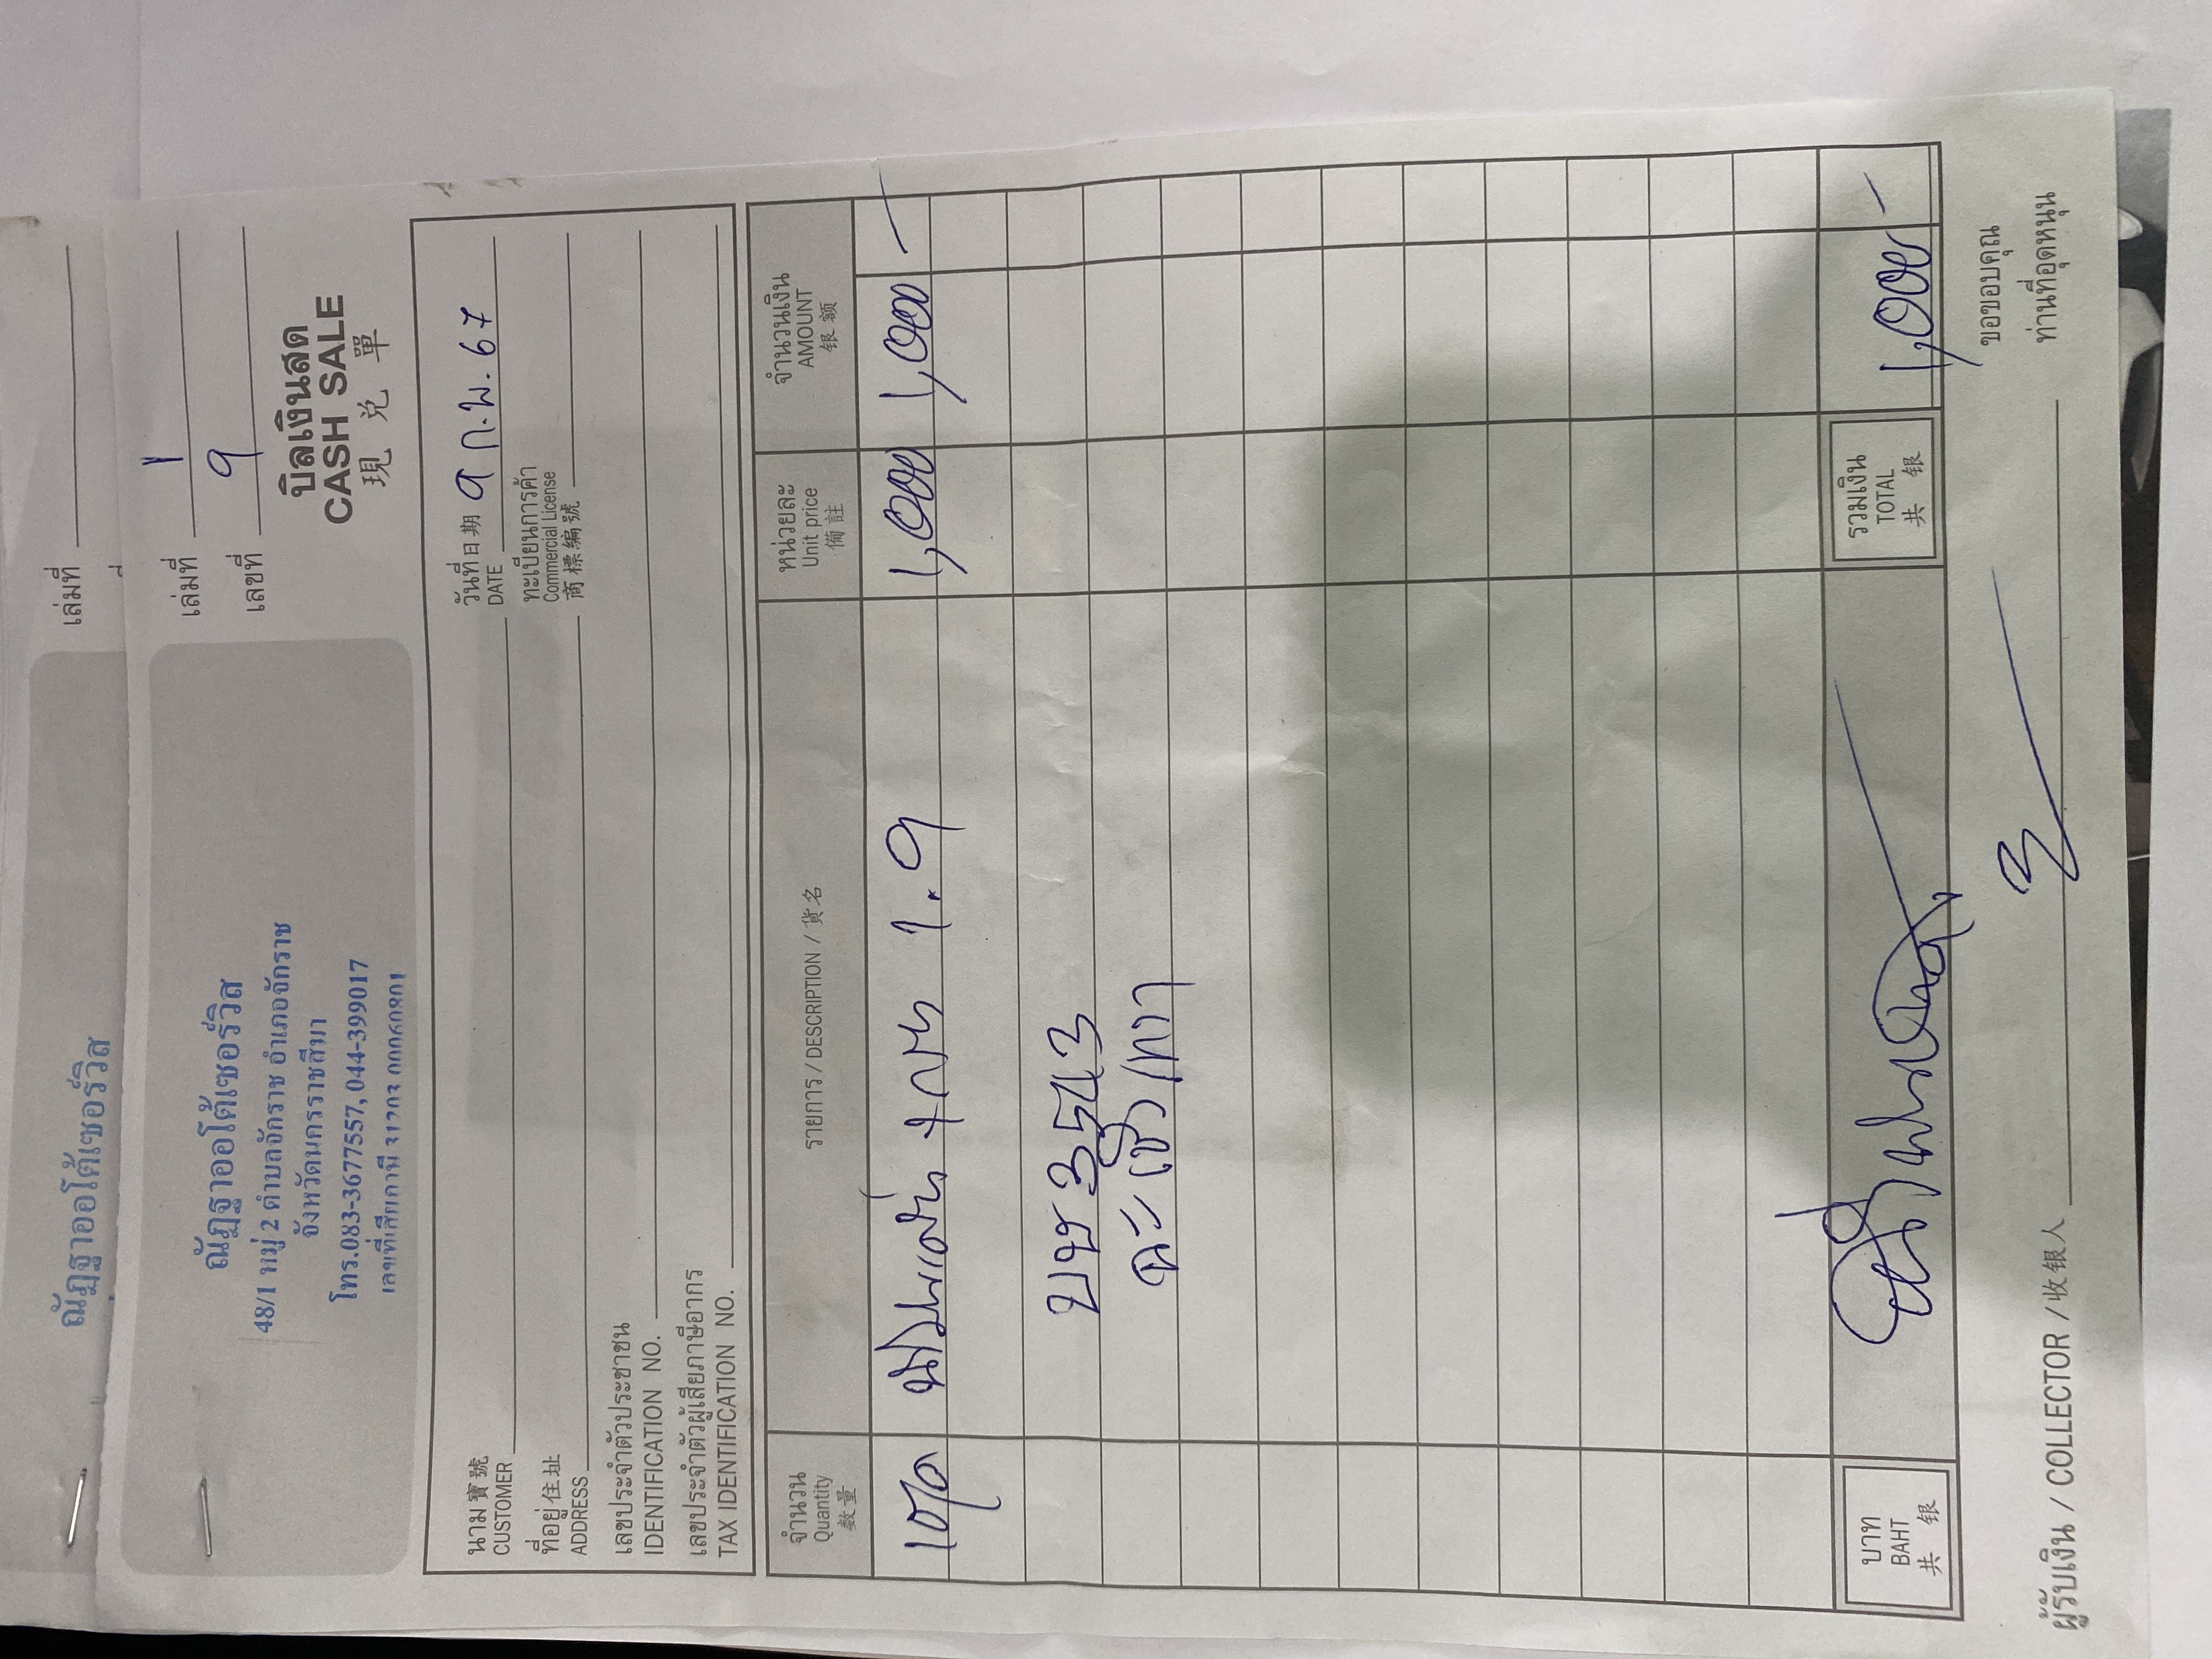 เล่มที่
ณัฏฐาออโต้เซอร์วิส
เล่มที่ 1
เลขที่ 9
ณัฏฐาออโต้เซอร์วิส
48/1 หมู่ 2 ตำบลจักราช อำเภอจักราช
จังหวัดนครราชสีมา
โทร.083-3677557, 044-399017
เลขที่เสียภาษี
บิลเงินสด
CASH SALE
現 兌 單
นาม寶號
CUSTOMER
วันที่日期 9 ก.พ. 67
DATE
ที่อยู่住址
ADDRESS
ทะเบียนการค้า
Commercial License
商標編號
เลขประจำตัวประชาชน
IDENTIFICATION NO.
เลขประจำตัวผู้เสียภาษีอากร
TAX IDENTIFICATION NO.
จำนวน
Quantity
数量
รายการ / DESCRIPTION / 貨名
หน่วยละ
Unit price
備註
จำนวนเงิน
AMOUNT
银额
1,000 1,000 -
บษ 3543
ฉะเชิงเทรา
บาท
BAHT
共 银
หนึ่งพันบาทถ้วน
รวมเงิน
TOTAL
共 银
1,000 -
ผู้รับเงิน / COLLECTOR / 收银人
ขอขอบคุณ
ท่านที่อุดหนุน